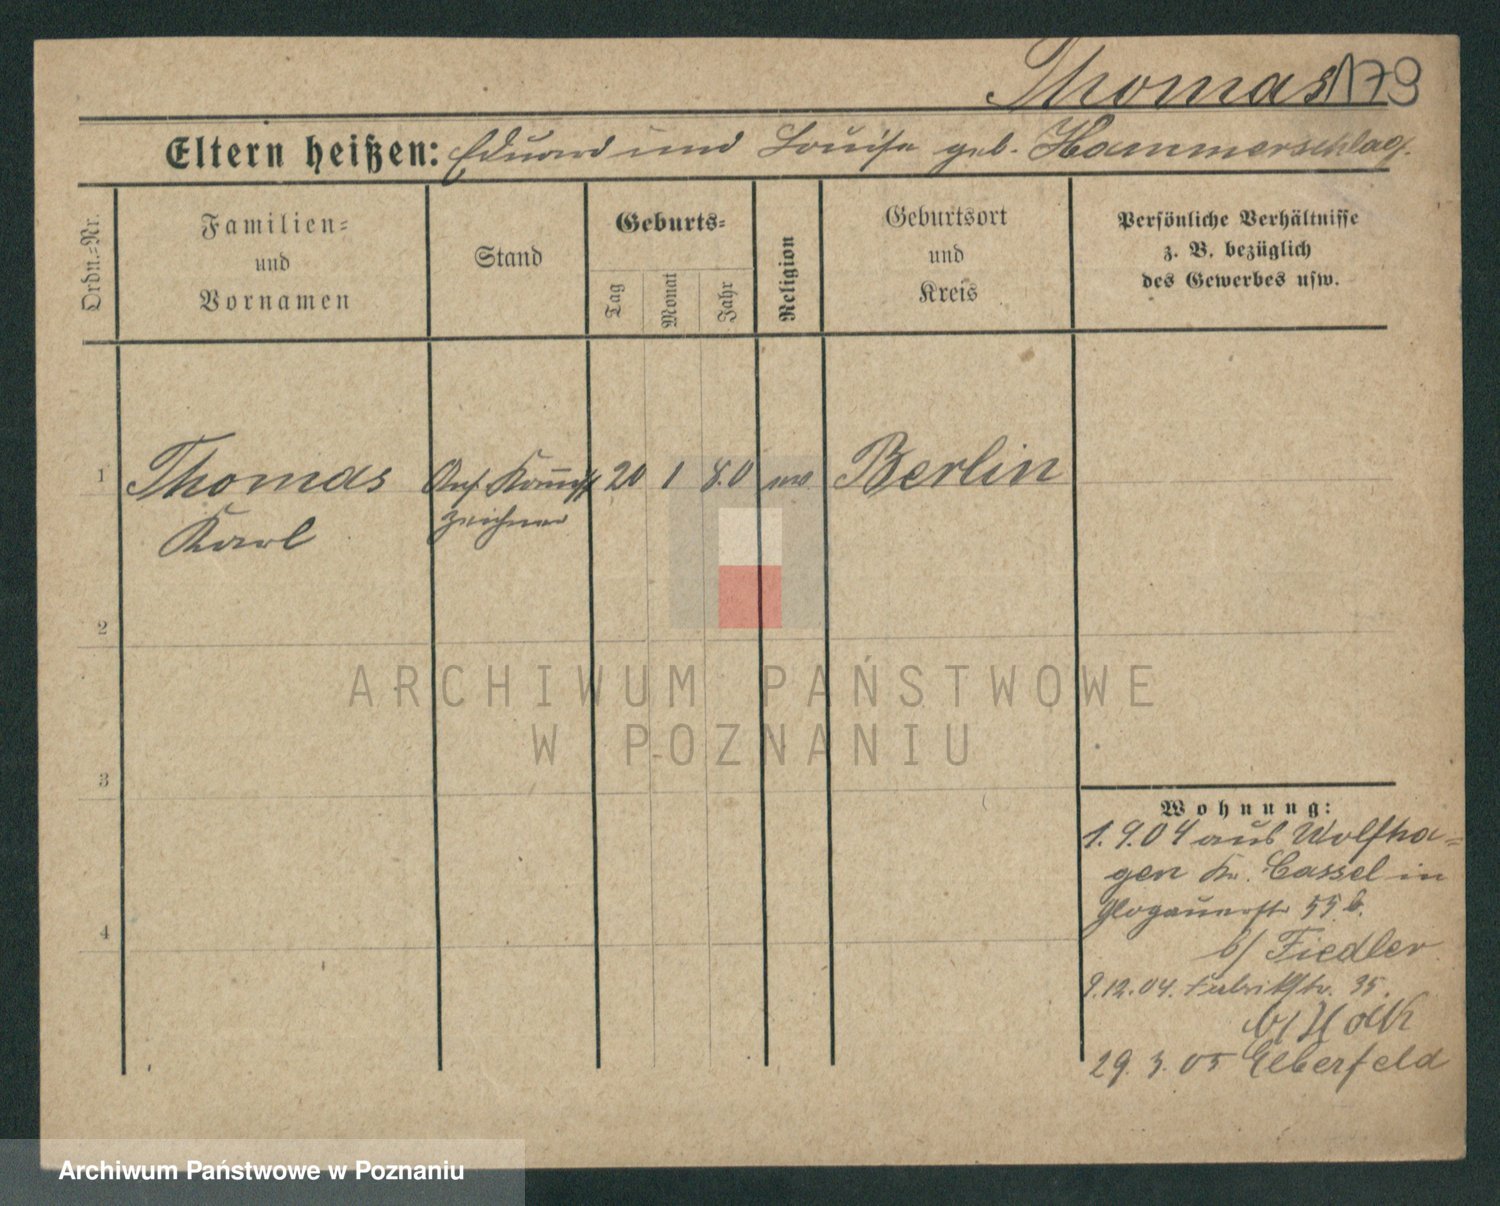 Thomas 179
Eltern heißen: Eduard und Louise geb. Hammerschlag.
Ordn.=Nr.
Familien=
und
Vornamen
Stand
Geburts=
Tag
Monat
Jahr
Religion
Geburtsort
und
Kreis
Persönliche Verhältnisse
z. B. bezüglich
des Gewerbes usw.
1 Thomas 20 1 80 Berlin
Karl zeichner
2
3
4
ARCHIWUM PAŃSTWOWE
W POZNANIU
Wohnung:
1.9.04 aus Wolfha=
gen Kr. Cassel in
Glogauerstr 55 b.
b/ Fiedler
9.12.04. Fabrikstr. 35.
b/
29. 3. 05 Elberfeld
Archiwum Państwowe w Poznaniu